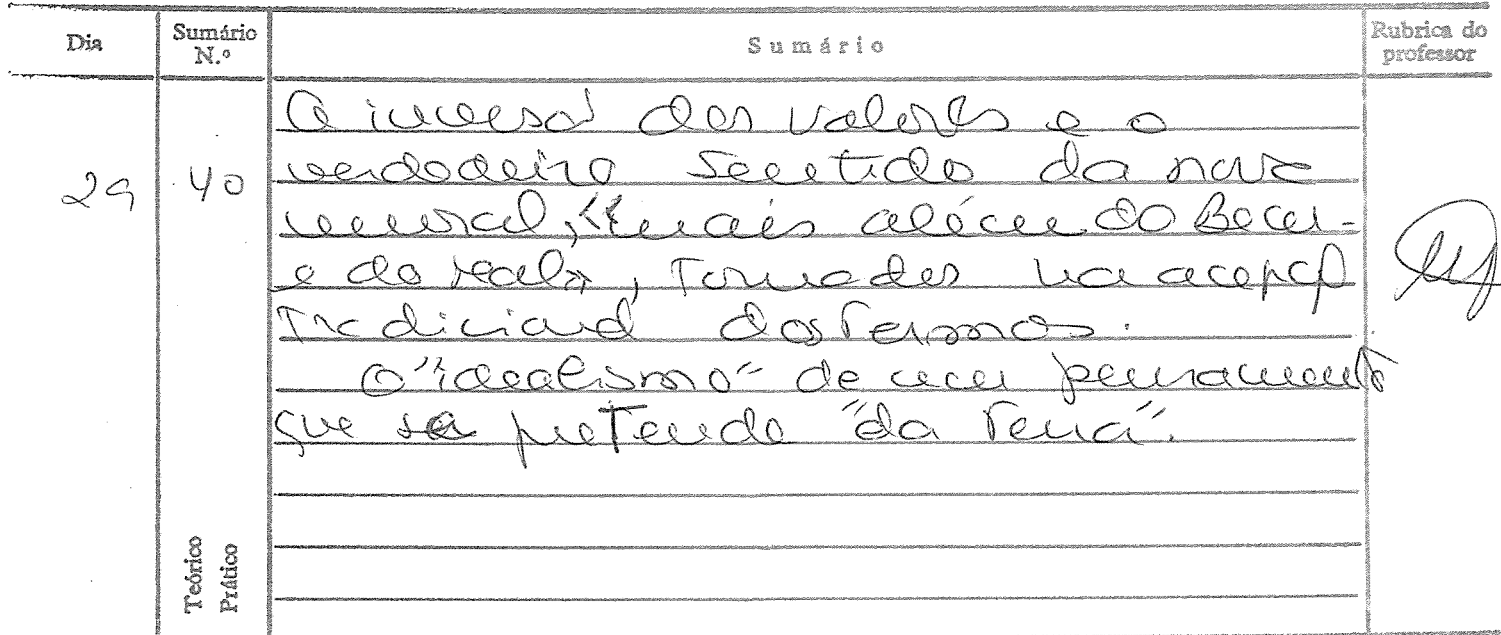 Dia
Sumário N.º
Sumário
Rubrica do professor
29
40
A inversão dos valores e o
verdadeiro sentido da nova
moral, «mais além do Bem
e do Mal», tomados na acepção
tradicional dos termos.
O "idealismo" de um pensamento
que se pretende "da Terra".
Teórico
Prático